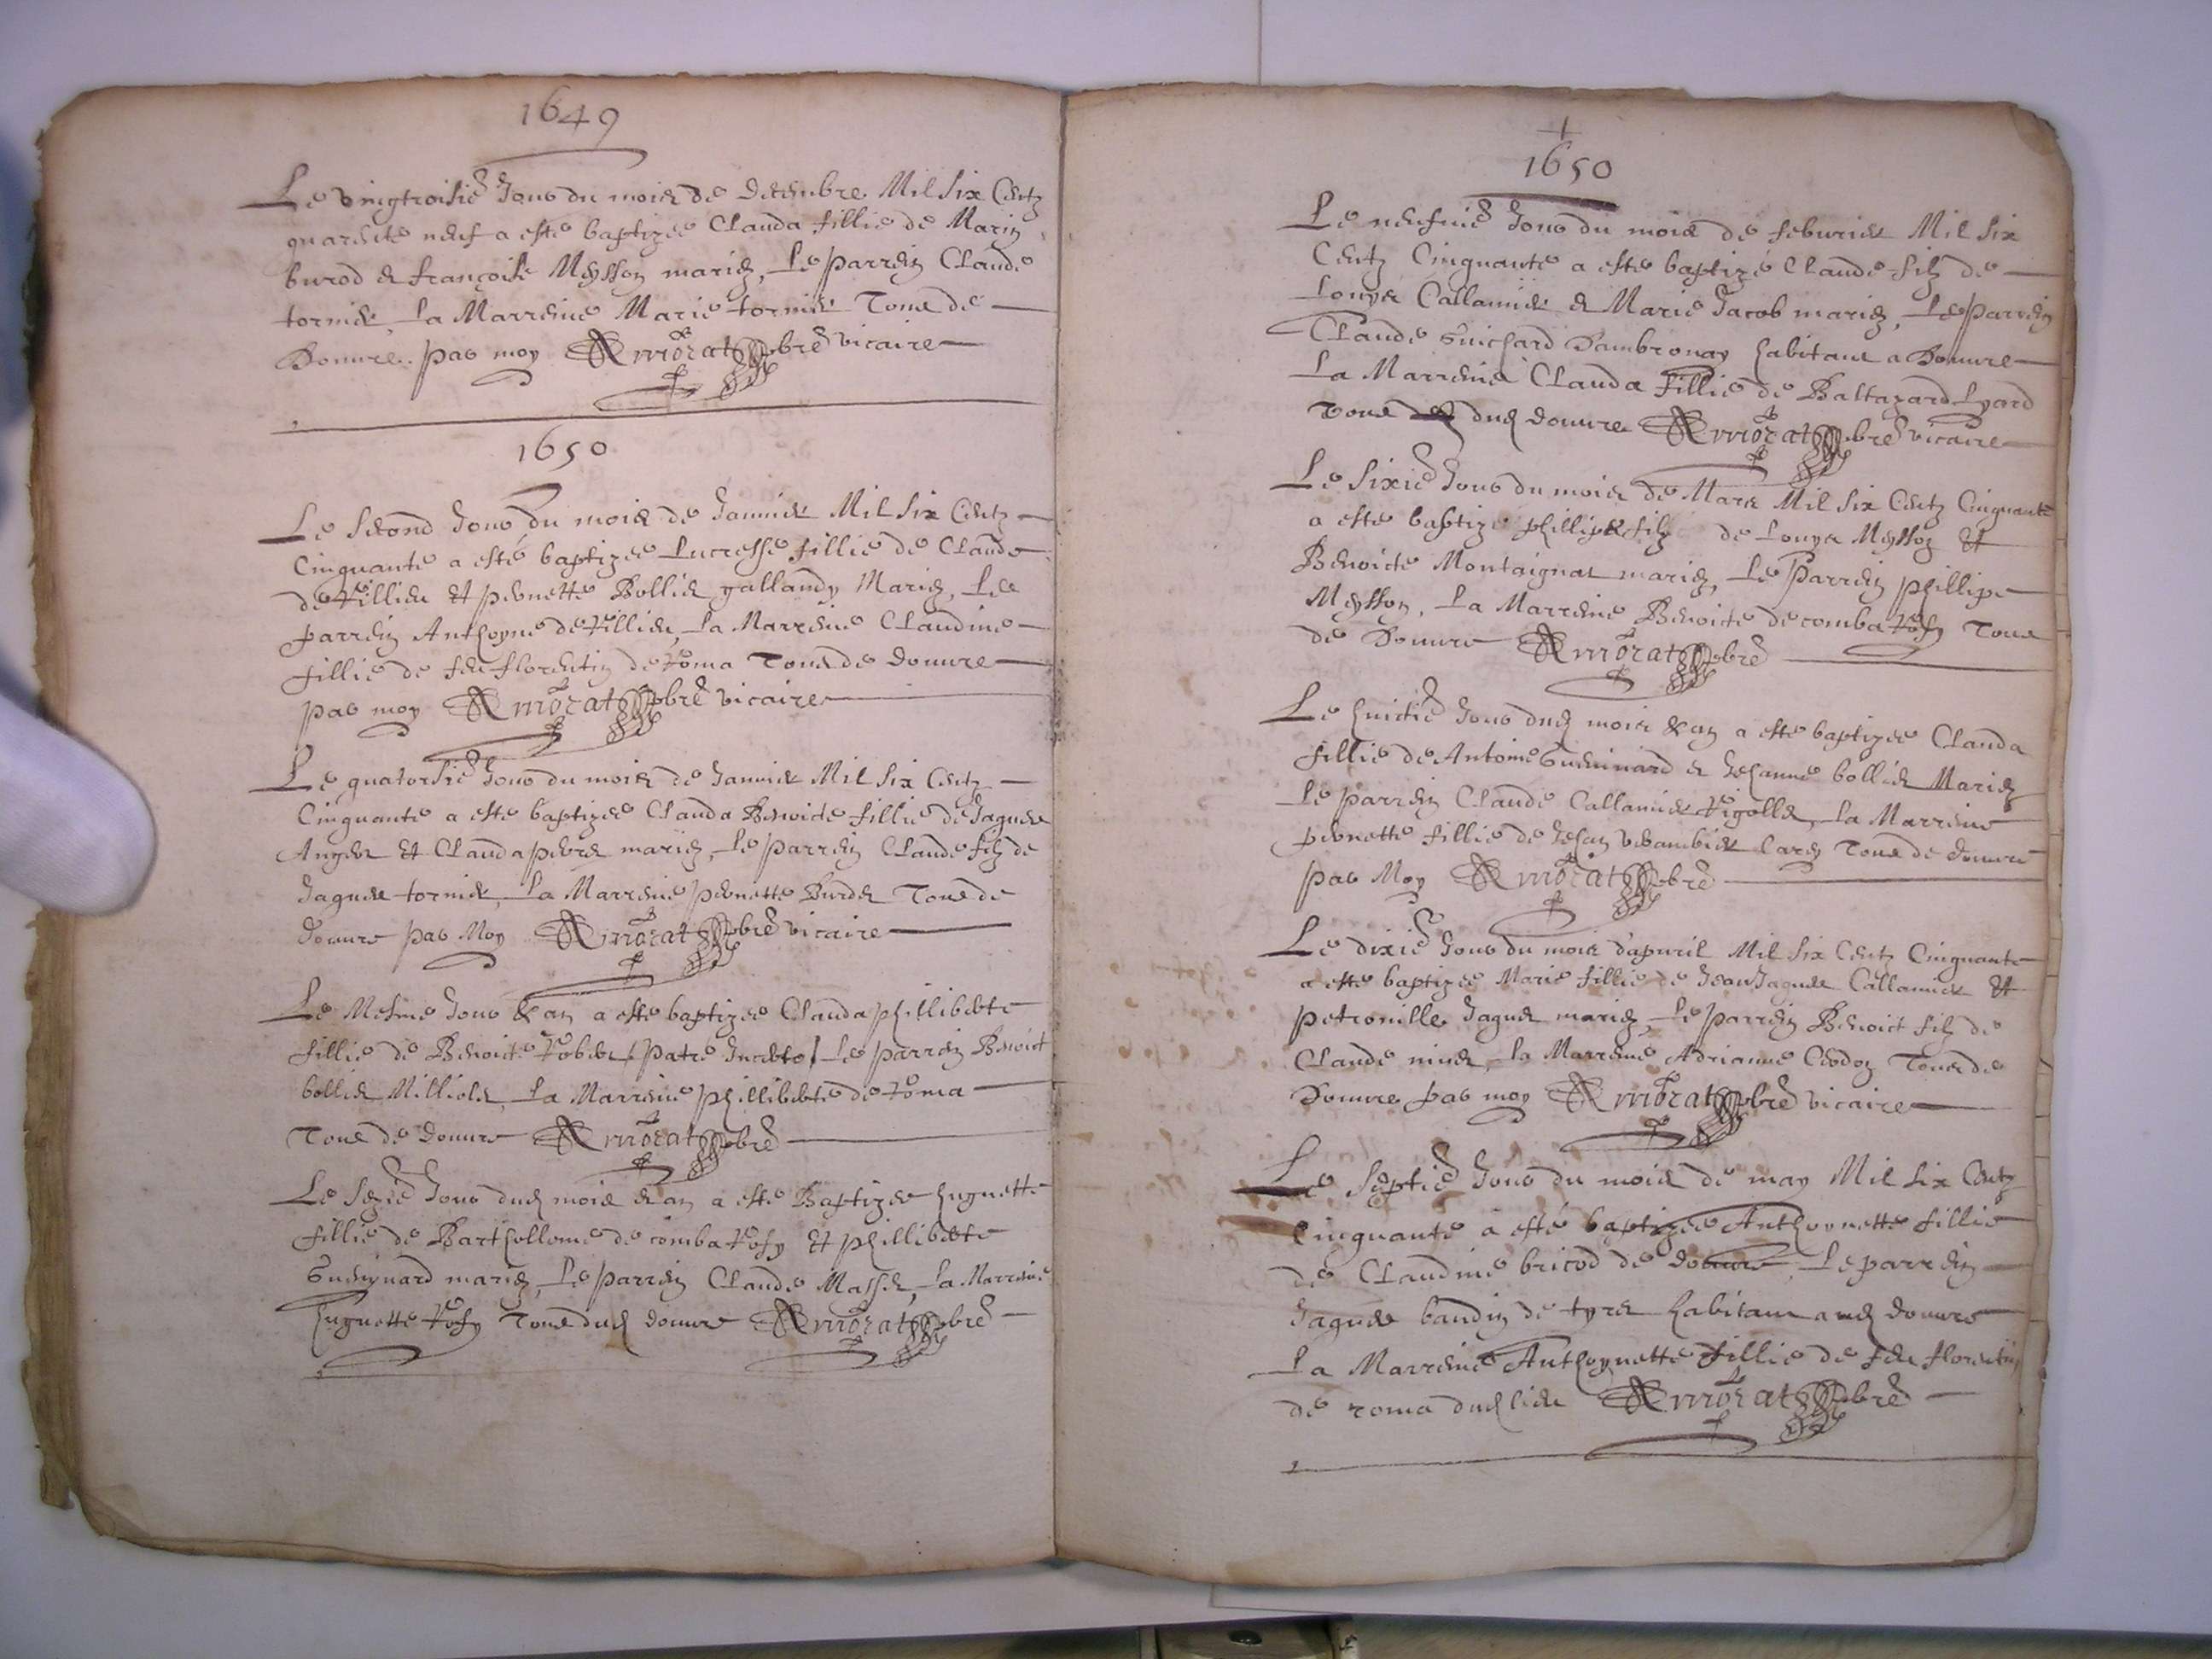 1649
Le vingtroisie Jour du mois de Decembre Mil six Centz
quarente neuf a este baptizee Clauda fillie de Marin
burod & françoise Meysson mariez, Le parrein Claude
tornier, La Marreine Marie tornier Tous de
Douure. par moy Armorat pbre vicaire
1650
Le Second Jour du mois de Januier Mil six Centz
Cinquante a esté baptizee Lucresse fillie de Claude
de Villieu Et pernette Bollie gallandy Mariez, Le
parrein Anthoyne de Villieu, La Marreine Claudine
fillie de feu florentin de Roma Tous de Douure
par moy Armorat pbre vicaire
Le quatorsie Jour du mois de Januier Mil six Centz
Cinquante a este baptizee Clauda Benoicte fillie de Jaques
Anger Et Clauda mariez, Le parrein Claude filz de
Jaques tornier, La Marreine pernette Burdet Tous de
Douure par Moy Armorat pbre vicaire
Le Mesme Jour & an a este baptizee Clauda philliberte
fillie de Benoicte patre Incerto, Le parrein Benoict
bollie Milliele, La Marreine phillibertes de Roma
Tous de Douure Armorat pbre
Le Sezie Jour dud mois & an a este Baptizee huguette
fillie de Barthollome de comba Et phillibertes
Gueynard mariez, Le parrein Claude Masse, La Marreine
huguette Tous dud Douure Armorat pbre
1650
Le neufuie Jour du mois de feburier Mil six
Centz Cinquante a este baptizé Claude filz de
Louys Callamier & Marie Jacob mariez, Le parrein
Claude Guichard Dambronay habitant a Douure
La Marreine Clauda fillie de Baltazard Lyard
Tous dud Douure Armorat pbre vicaire
Le Sixie Jour du mois de Mars Mil six Centz Cinquante
a este baptize phillipe filz de Louys Meysson Et
Benoicte Montaignat mariez, Le Parrein phillipe
Meysson, La Marreine Benoicte de comba Tous
de Douure Armorat pbre
Le huictie Jour dud mois & an a este baptizee Clauda
fillie de Antoine Gueninard & Jehanne bollie Mariez
Le parrein Claude Callamier La Marreine
pernette fillie de Jehan Tous de Douure
par Moy Armorat pbre
Le dixie Jour du mois d'apuril Mil six Centz Cinquante
a este baptizee Marie fillie de Jean Jaques Callamier Et
petronille Jaques mariez, Le parrein Benoict filz de
Claude La Marreine Adrianne Tous de
Douure par moy Armorat pbre vicaire
Le Septie Jour du mois de may Mil six Centz
Cinquante a esté baptizee Anthoynette fillie
de Claudine bricod de Douure Le parrein
Jaques baudin de tyre habitant aud Douure
La Marreine Anthoynette fillie de feu florentin
de roma dud lieu Armorat pbre